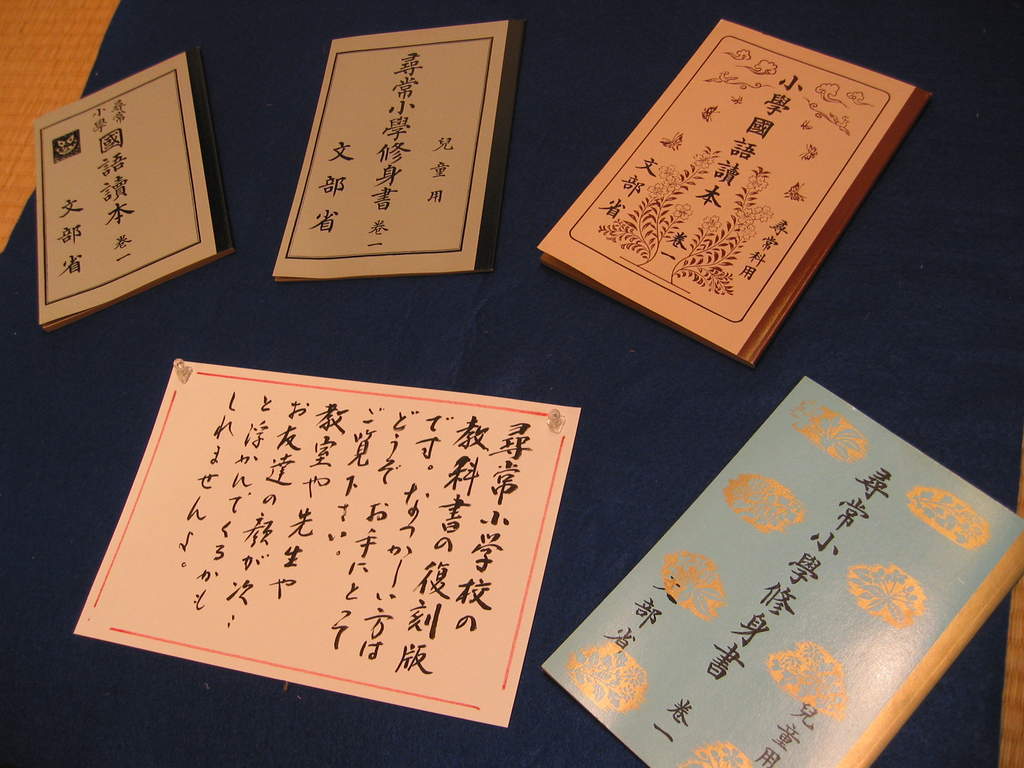 尋常
小學
國語讀本
巻一
文部省
尋常小學修身書
巻一
兒童用
文部省
小學國語讀本
巻一
尋常科用
文部省
尋常小学校の
教科書の復刻版
です。なつかしい方は
どうぞお手にとって
ご覧下さい。
教室や先生や
お友達の顔が次々
と浮かんでくるかも
しれませんよ。
尋常小學修身書
巻一
兒童用
文部省